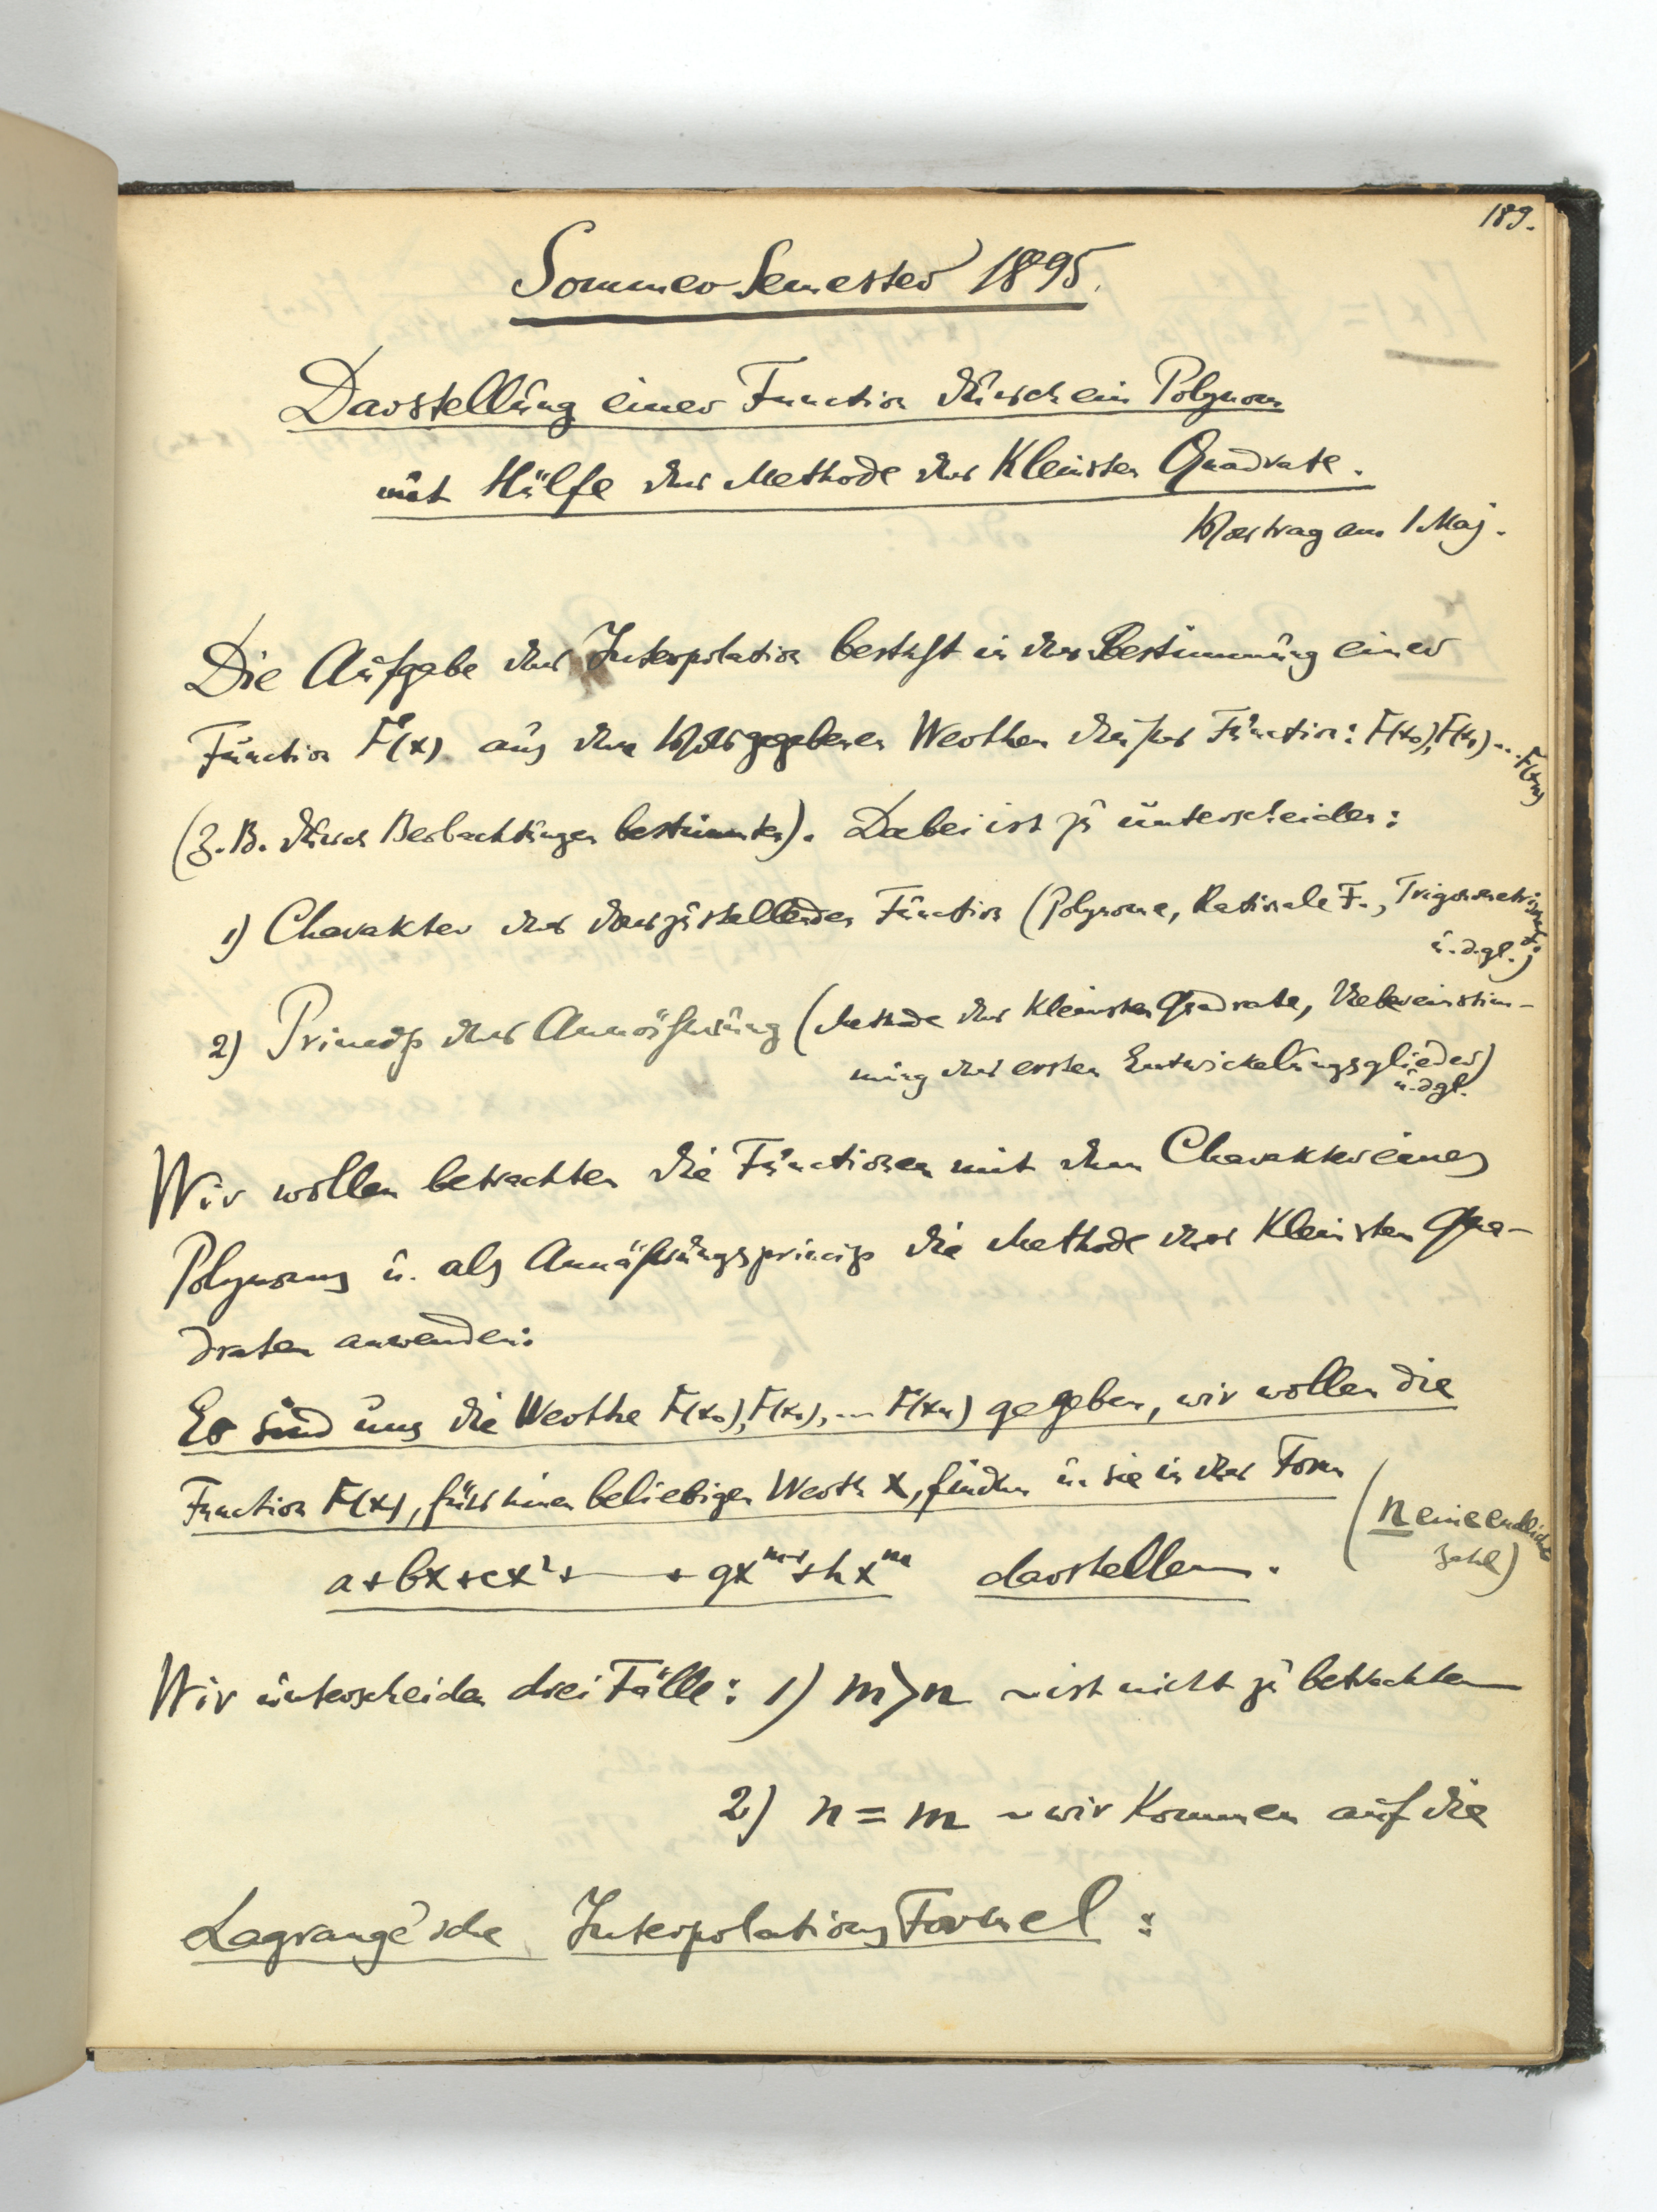 189.
Sommer Semester 1895.
Darstellung einer Function durch ein Polynom
mit Hülfe der Methode der Kleinsten Quadrate.
Vortrag am 1 Maj.
Die Aufgabe der Interpolation besteht in der Bestimmung einer
Function F(x) aus den vorgegebenen Werthen dieser Function: F(x₀), F(x₁) ... F(xn)
(z. B. durch Beobachtungen bestimmten). Dabei ist zu unterscheiden:
1) Charakter der darzustellenden Function (Polynome, Rationale F., Trigonometrische
u. dgl.)
2) Princip der Annäherung (Methode der Kleinsten Quadrate, Uebereinstim-
mung der ersten Entwickelungsglieder)
u. dgl.
Wir wollen betrachten die Functionen mit dem Charakter eines
Polynoms u. als Annäherungsprincip die Methode der Kleinsten Qua-
draten anwenden:
Es sind uns die Werthe F(x₀), F(x₁), ... F(xn) gegeben, wir wollen die
Function F(x), für einen beliebigen Werth x, finden u. sie in der Form
(n eine endliche
Zahl)
a+bx+cx²+ — + gxᵐ⁻¹+hxᵐ darstellen.
Wir unterscheiden drei Fälle: 1) m>n ~ ist nicht zu betrachten
2) n = m ~ wir kommen auf die
Lagrange'sche Interpolations Formel :